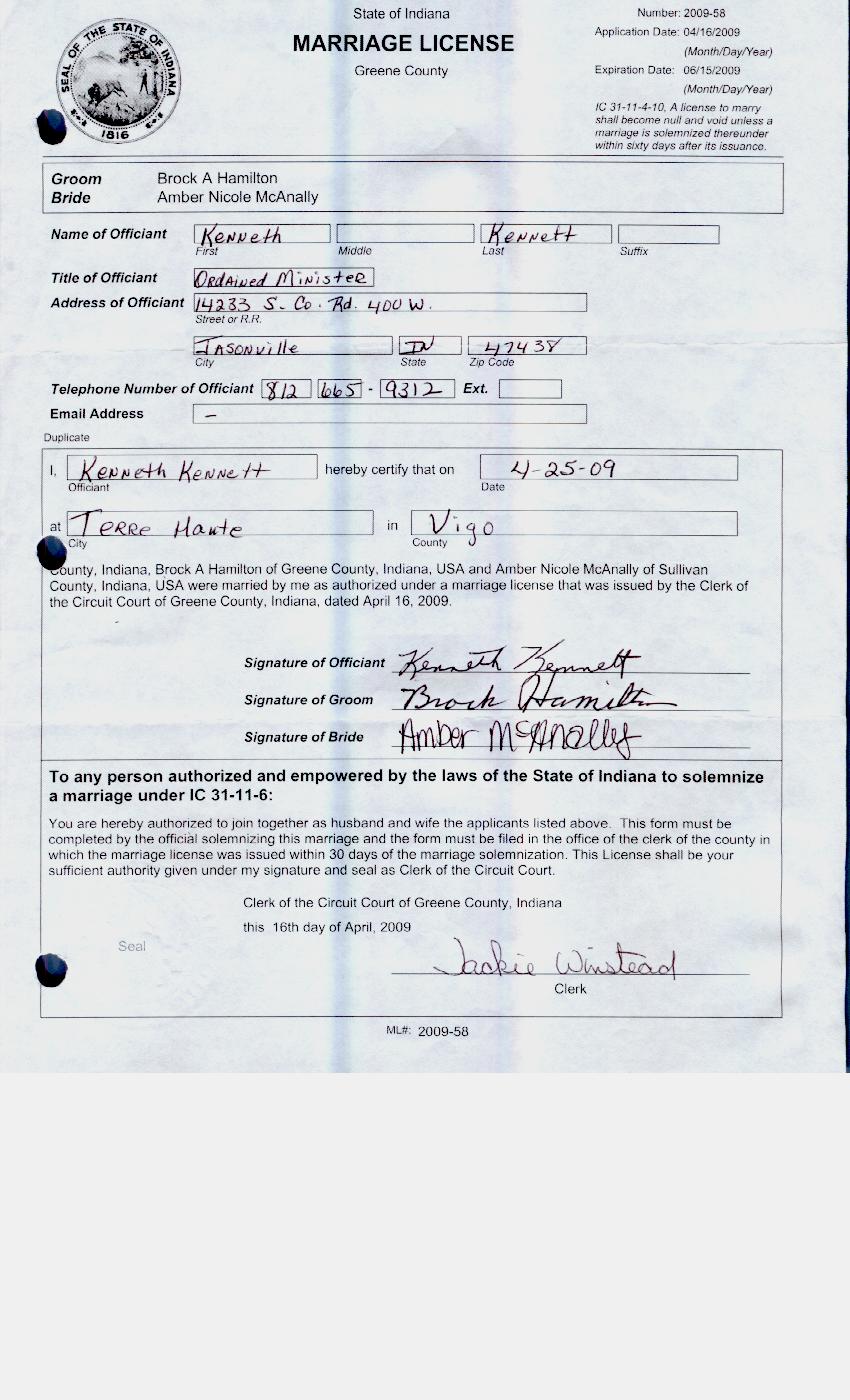 State of Indiana
MARRIAGE LICENSE
Greene County
SEAL OF THE STATE OF INDIANA
1816
Number: 2009-58
Application Date: 04/16/2009
(Month/Day/Year)
Expiration Date: 06/15/2009
(Month/Day/Year)
IC 31-11-4-10, A license to marry
shall become null and void unless a
marriage is solemnized thereunder
within sixty days after its issuance.
Groom Brock A Hamilton
Bride Amber Nicole McAnally
Name of Officiant Kenneth Kennett
First Middle Last Suffix
Title of Officiant Ordained Minister
Address of Officiant 14233 S. Co. Rd. 400 W.
Street or R.R.
Jasonville IN 47438
City State Zip Code
Telephone Number of Officiant 812 665 - 9312 Ext.
Email Address –
Duplicate
I, Kenneth Kennett hereby certify that on 4-25-09
Officiant Date
at Terre Haute in Vigo
City County
County, Indiana, Brock A Hamilton of Greene County, Indiana, USA and Amber Nicole McAnally of Sullivan
County, Indiana, USA were married by me as authorized under a marriage license that was issued by the Clerk of
the Circuit Court of Greene County, Indiana, dated April 16, 2009.
Signature of Officiant Kenneth Kennett
Signature of Groom Brock Hamilton
Signature of Bride Amber McAnally
To any person authorized and empowered by the laws of the State of Indiana to solemnize
a marriage under IC 31-11-6:
You are hereby authorized to join together as husband and wife the applicants listed above. This form must be
completed by the official solemnizing this marriage and the form must be filed in the office of the clerk of the county in
which the marriage license was issued within 30 days of the marriage solemnization. This License shall be your
sufficient authority given under my signature and seal as Clerk of the Circuit Court.
Clerk of the Circuit Court of Greene County, Indiana
this 16th day of April, 2009
Seal
Jackie Winstead
Clerk
ML#: 2009-58